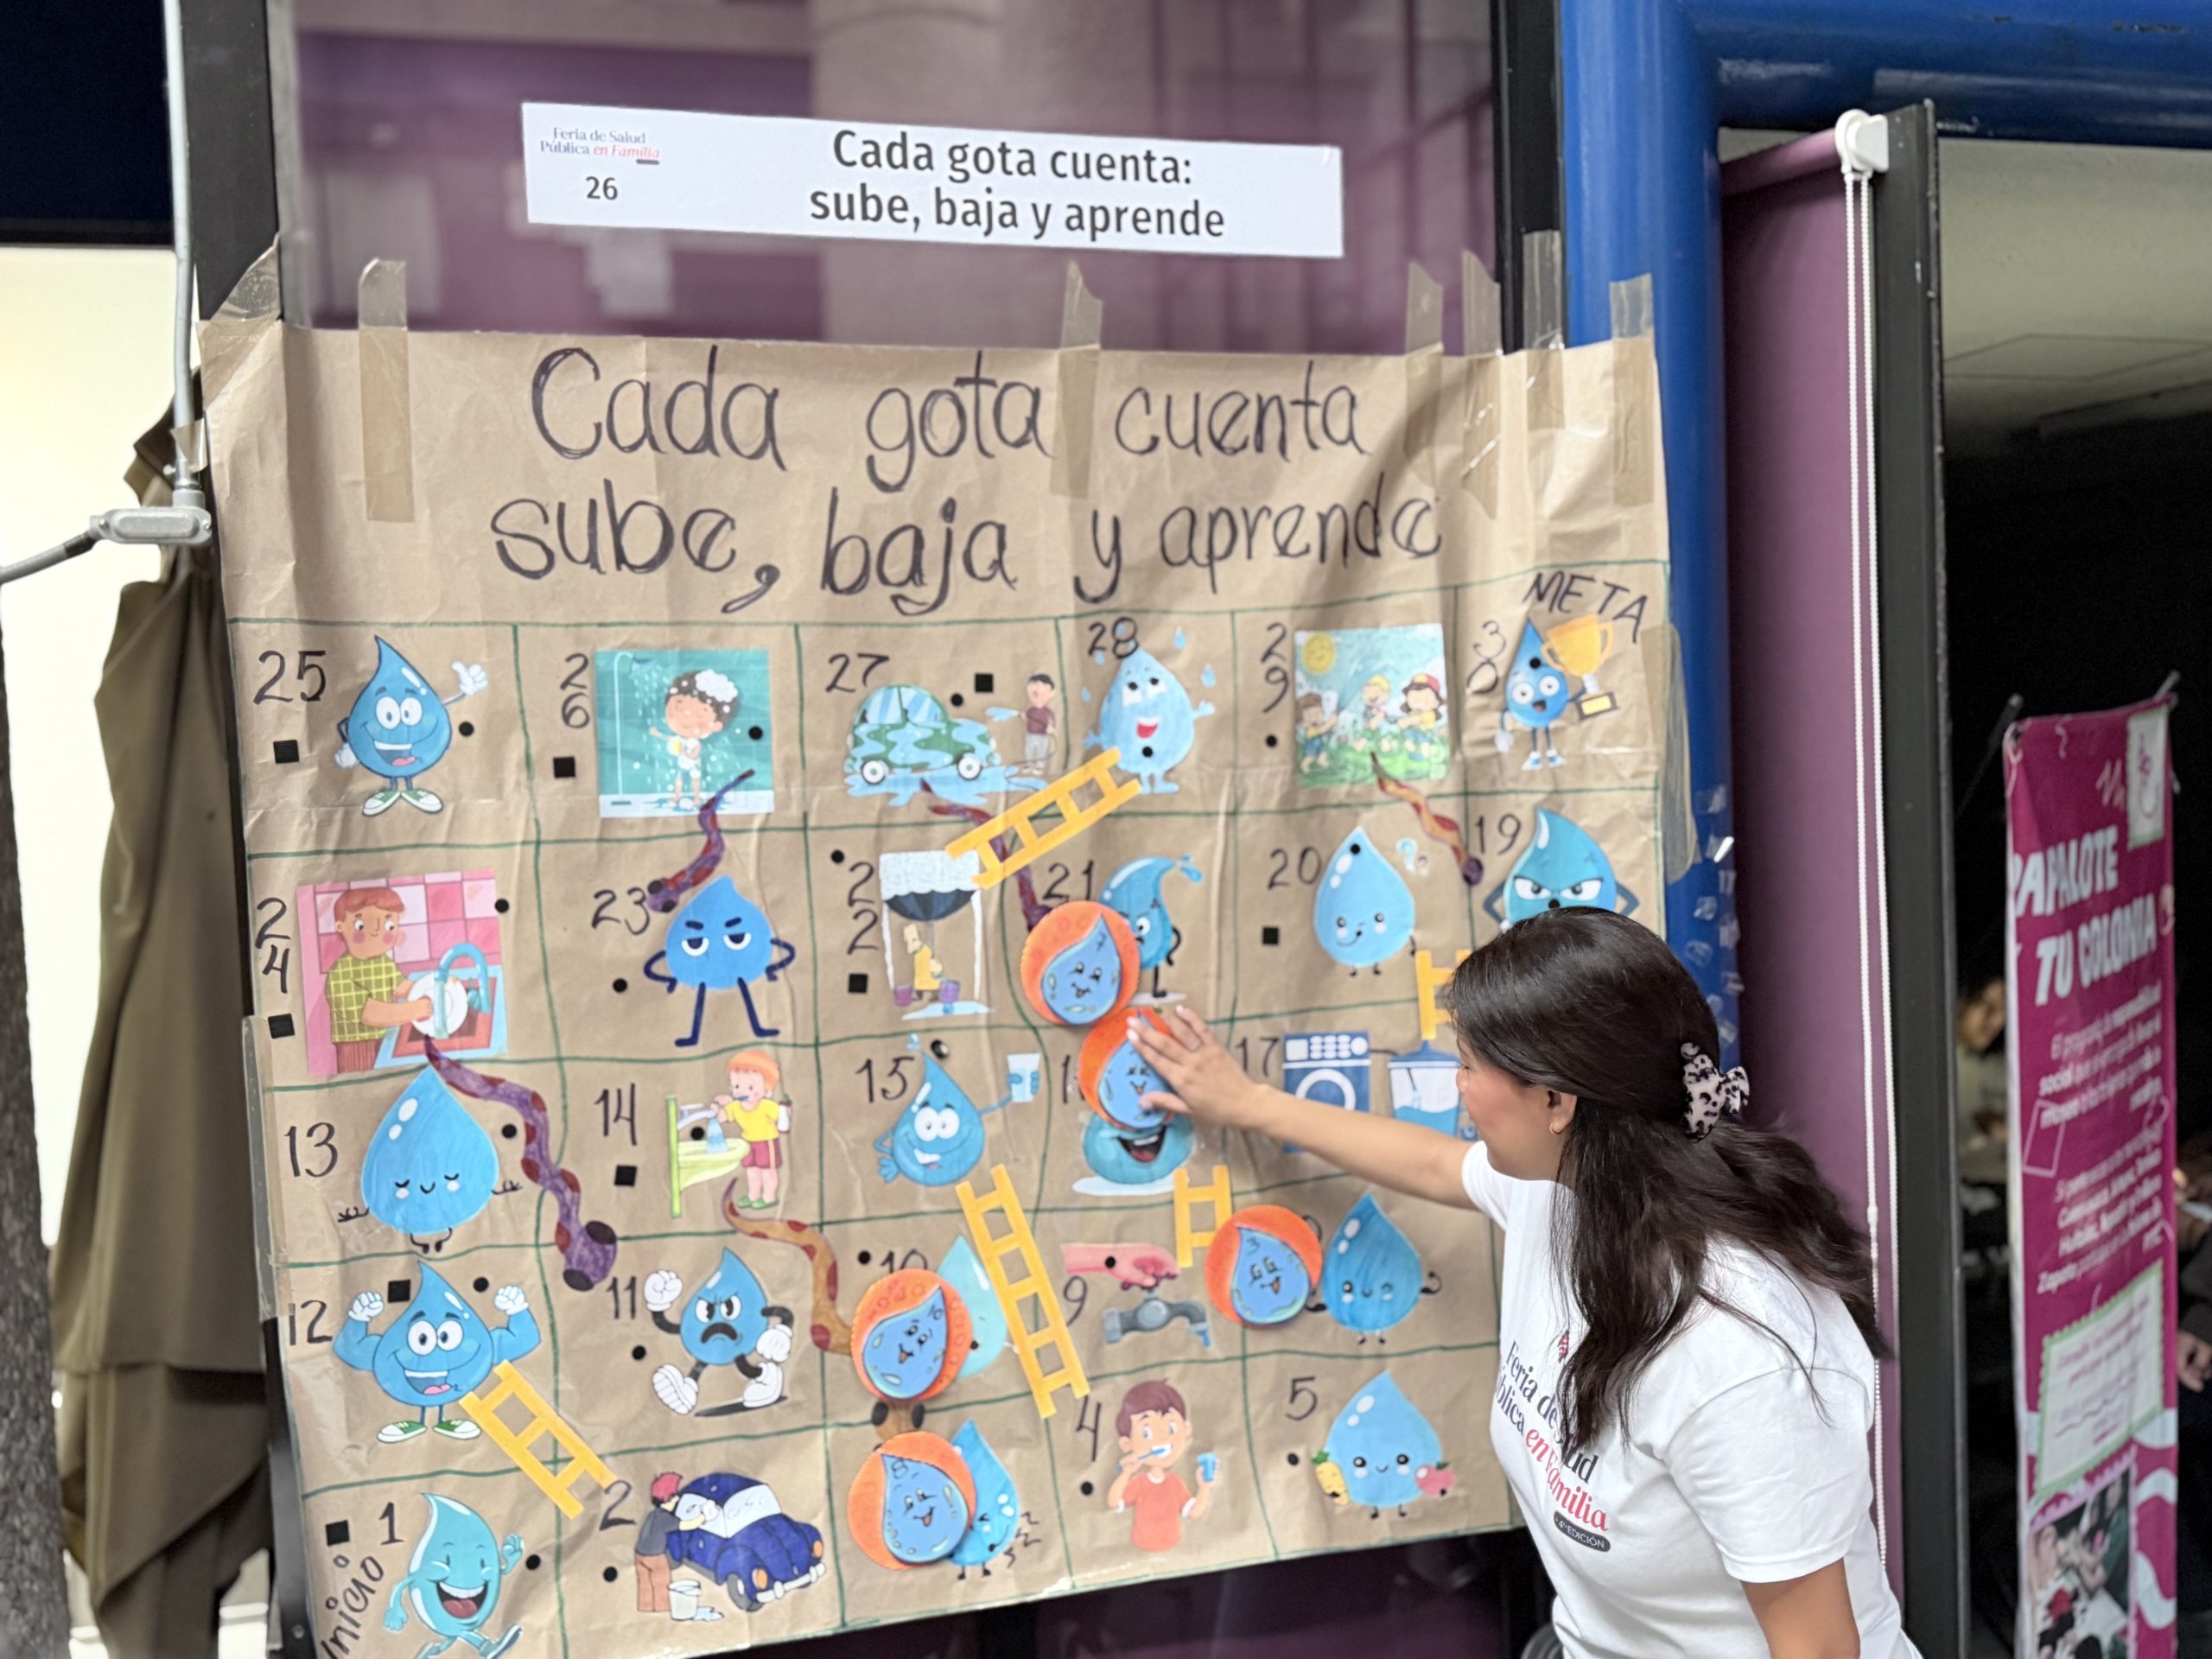 Feria de Salud
Pública en Familia
26
Cada gota cuenta:
sube, baja y aprende
Cada gota cuenta
sube, baja y aprende
META
25
26
27
28
29
30
24
23
22
21
20
19
13
14
15
17
12
11
10
9
1
2
4
5
Inicio
Feria de
en Familia
EDICIÓN
PAPALOTE
TU COLONIA